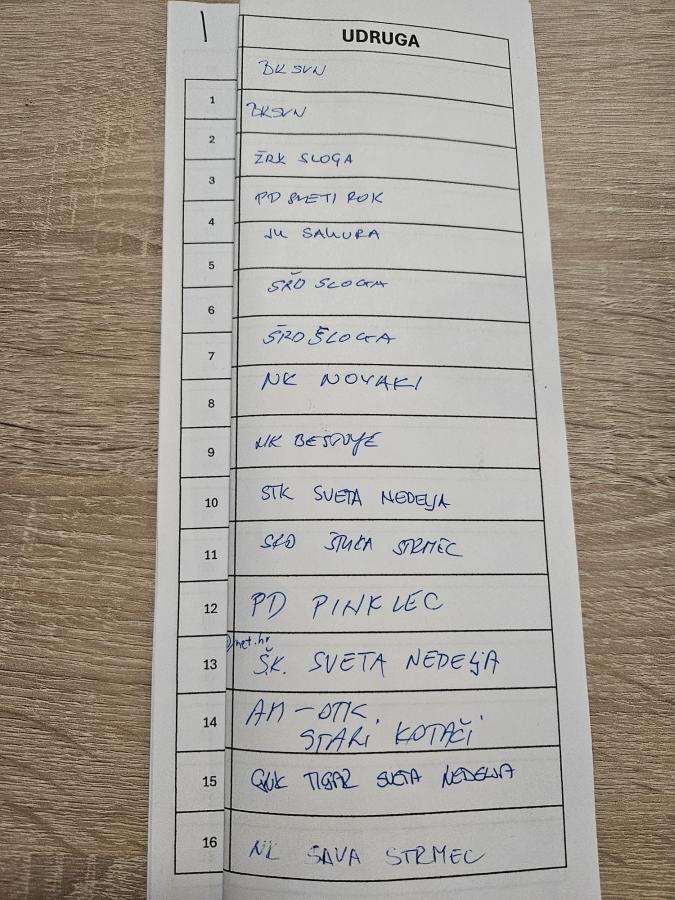 1
UDRUGA
ŽK SVN
1
ŽKSVN
2
ŽRK SLOGA
3
PD SVETI ROK
4
JK SAKURA
5
ŠRD SLOGA
6
ŠRD SLOGA
7
NK NOVAKI
8
9
NK BESTOVJE
10
STK SVETA NEDELJA
11
SRD ŠTUKA STRMEC
12
PD PINKLEC
net.hr
13
Š.K. SVETA NEDELJA
14
AM - OTK
STARI KOTAČI
15
TIGAR SVETA NEDELJA
16
NK SAVA STRMEC